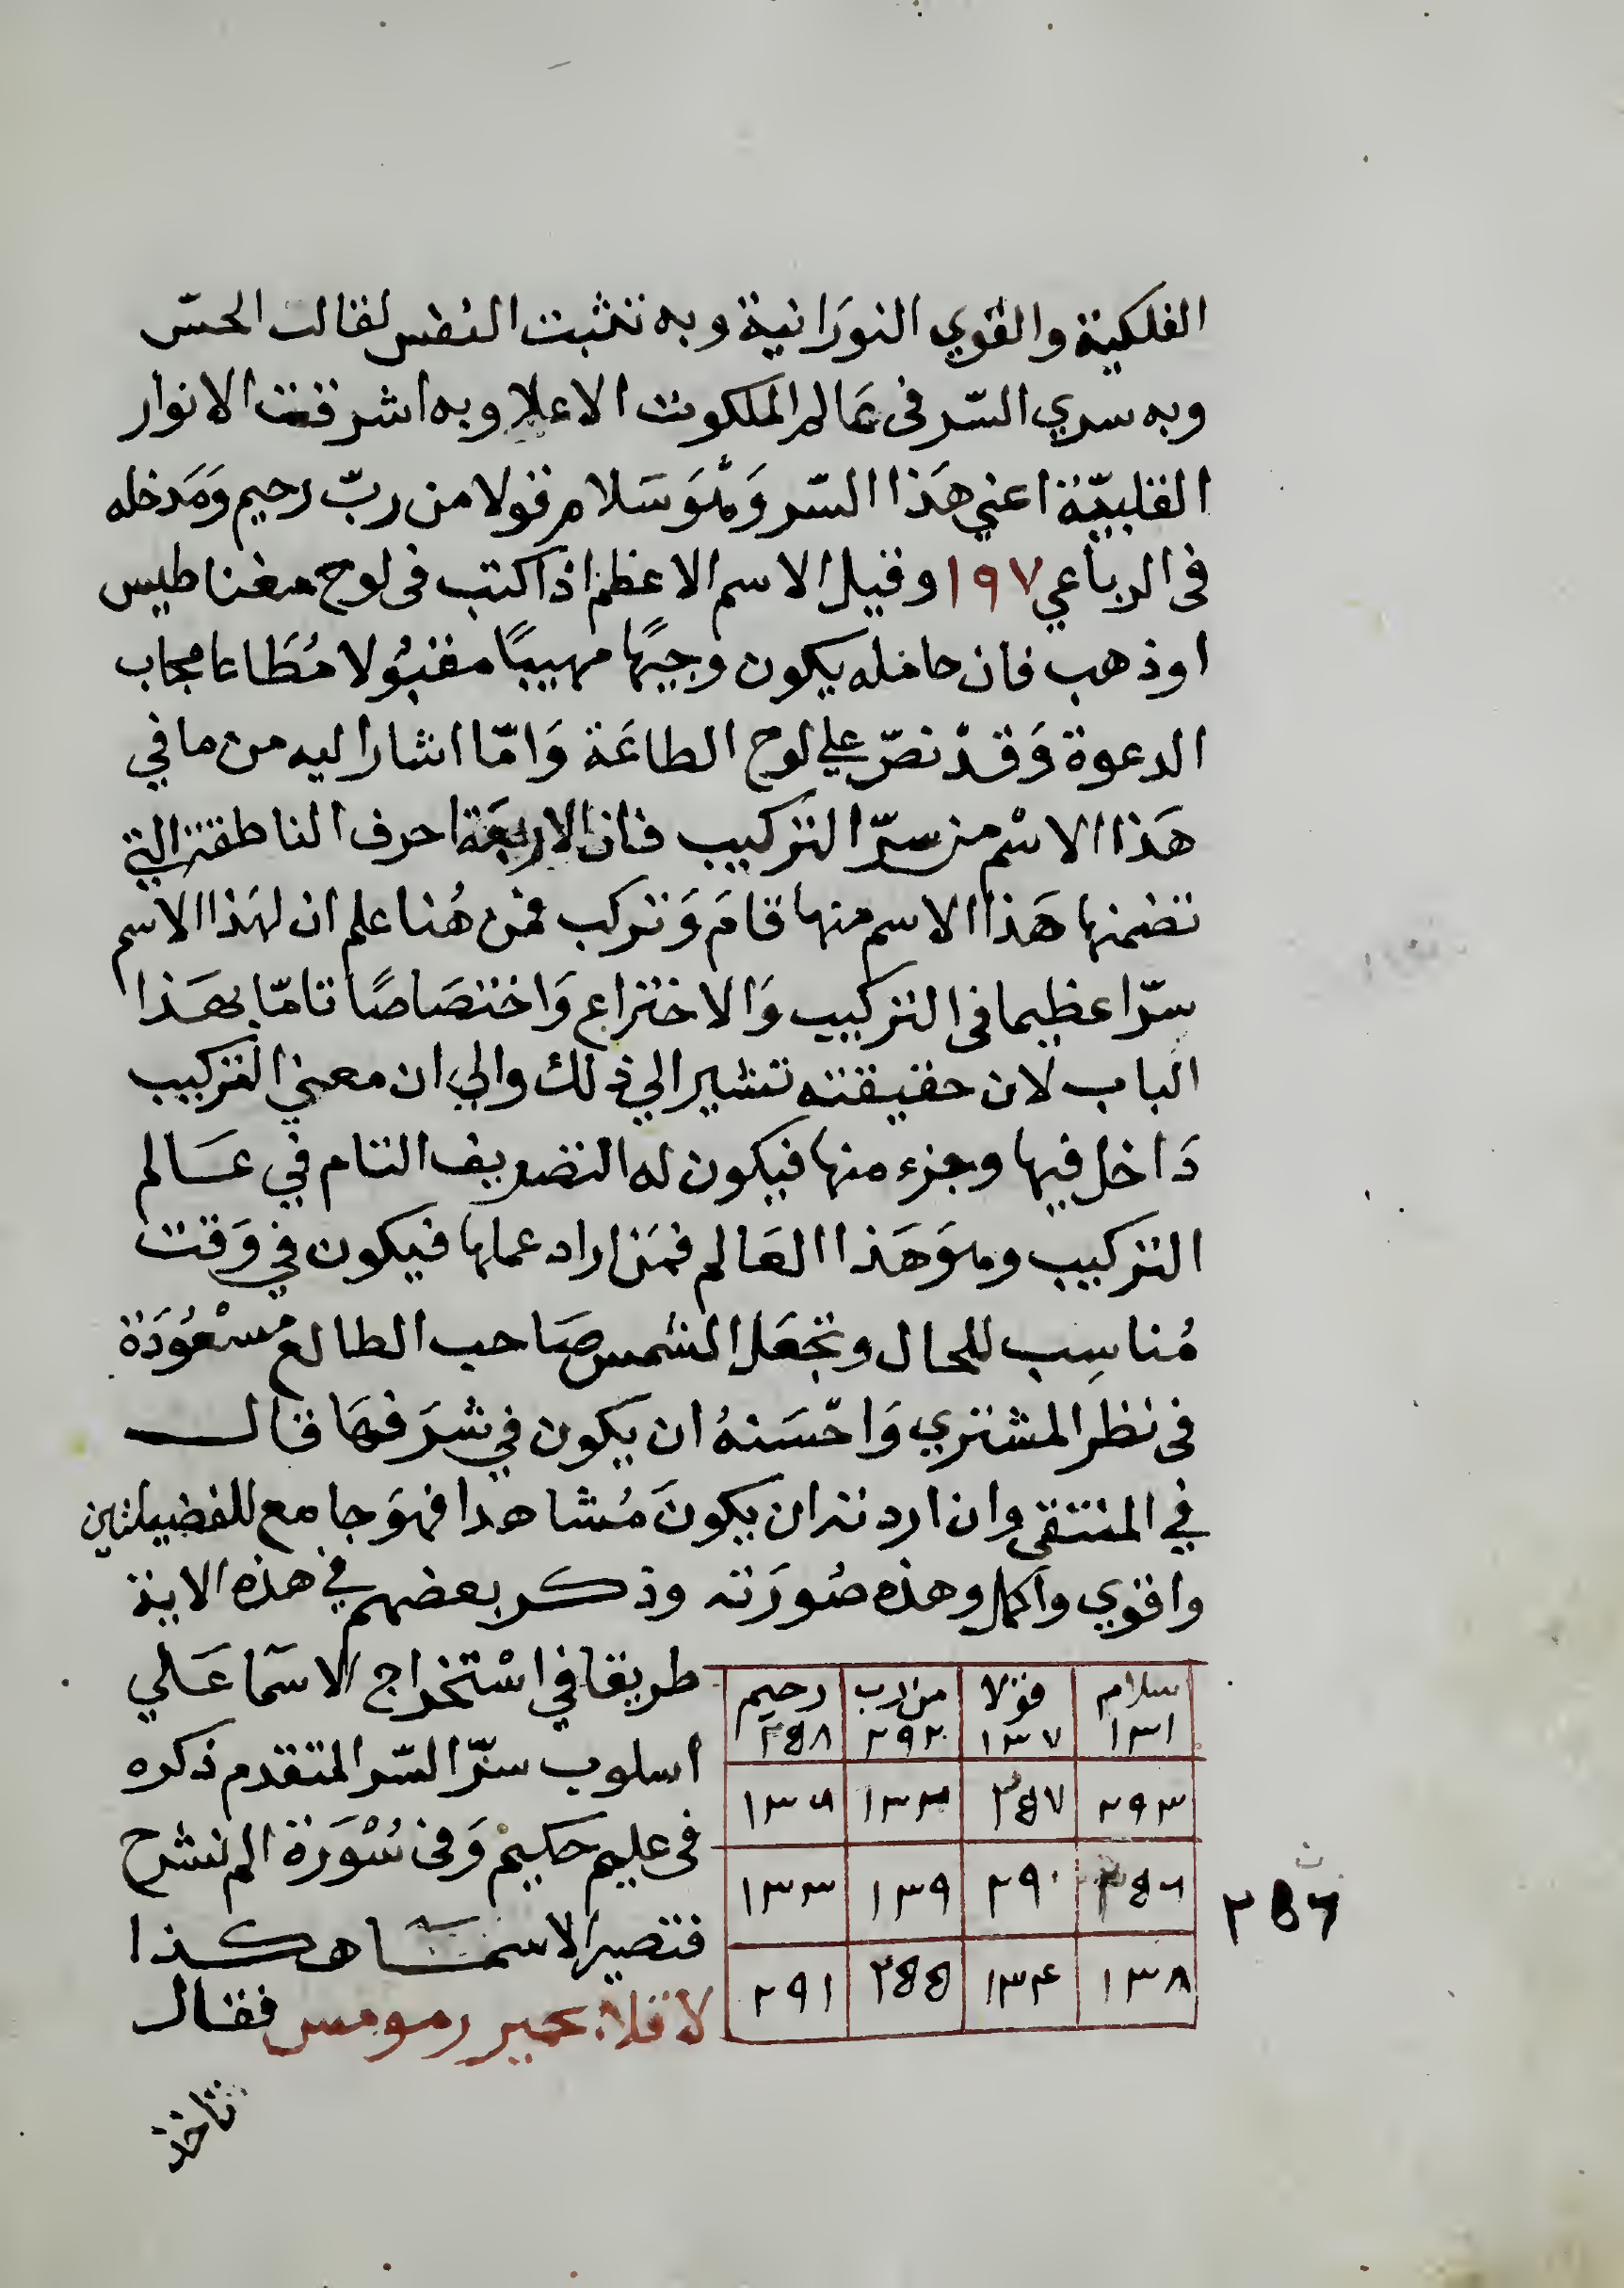 الفلكية والقوي النورانية وبه تثبت النفس لقالب الحسّ
وبه سري السّر فى عالم الملكوت الاعلا وبه اشرقت الانوار
القلبيّة اعني هَذا السّر وَهُوَ سَلام قولا من ربّ رحيم وَمَدخله
فى الرباعي ١٩٧ وقيل الاسم الاعظم اذا كتب فى لوح مغناطيس
او ذهب فان حامله يكون وجيهًا مهيبًا مقبُولا مُطَاعا مجاب
الدعوة وَقدْ نصّ علي لوح الطاعَة وَامّا اشار اليه من ما في
هَذا الاسْم من سرّ التركيب فان الاربعَة احرف الناطقة التي
تضمنها هَذا الاسم منها قامَ وَتركب فمن هُنا علم ان لهَذا الاسم
سرّا عظيما فى التركيب وَالاختراع وَاختصَاصًا تامّا بهَذا
الباب لان حقيقته تشير الي ذلك والي ان معني التركيب
دَاخل فيها وجزء منها فيكون له التصريف التام في عَالم
التركيب وهوَ هَذا العَالم فمَن اراد عملها فيكون في وَقت
مُناسِب للحال وتجعَل الشمس صَاحب الطالع مسْعُودَة
فى نظر المشتري وَاحْسَنهُ ان يكون في شرَفهَا قال
في المنتقى وان اردته ان يكونَ مُشاهدا فهوَ جامع للفضيلتين
واقوي واكمل وهذه صُورَته وذكر بعضهم في هذه الاية
طريقا في اسْتخراج الاسمَا عَلي
اسلوب سرّ السّر المتقدم ذكره
فى عليم حكيم وَفى سُوْرَة الم نشرح
فتصير الاسمَا هكذا
لاقلا، عمير رمومس فقال
سلام ١٣١ | قولا ١٣٧ | من رب ٢٩٢ | رحيم ٢٥٨
٢٩٣ | ٢٥٧ | ١٣٢ | ١٣٦
٢٥٦ | ٢٩٠ | ١٣٩ | ١٣٣
١٣٨ | ١٣٤ | ٢٥٥ | ٢٩١
٢٥٦
تاخذ